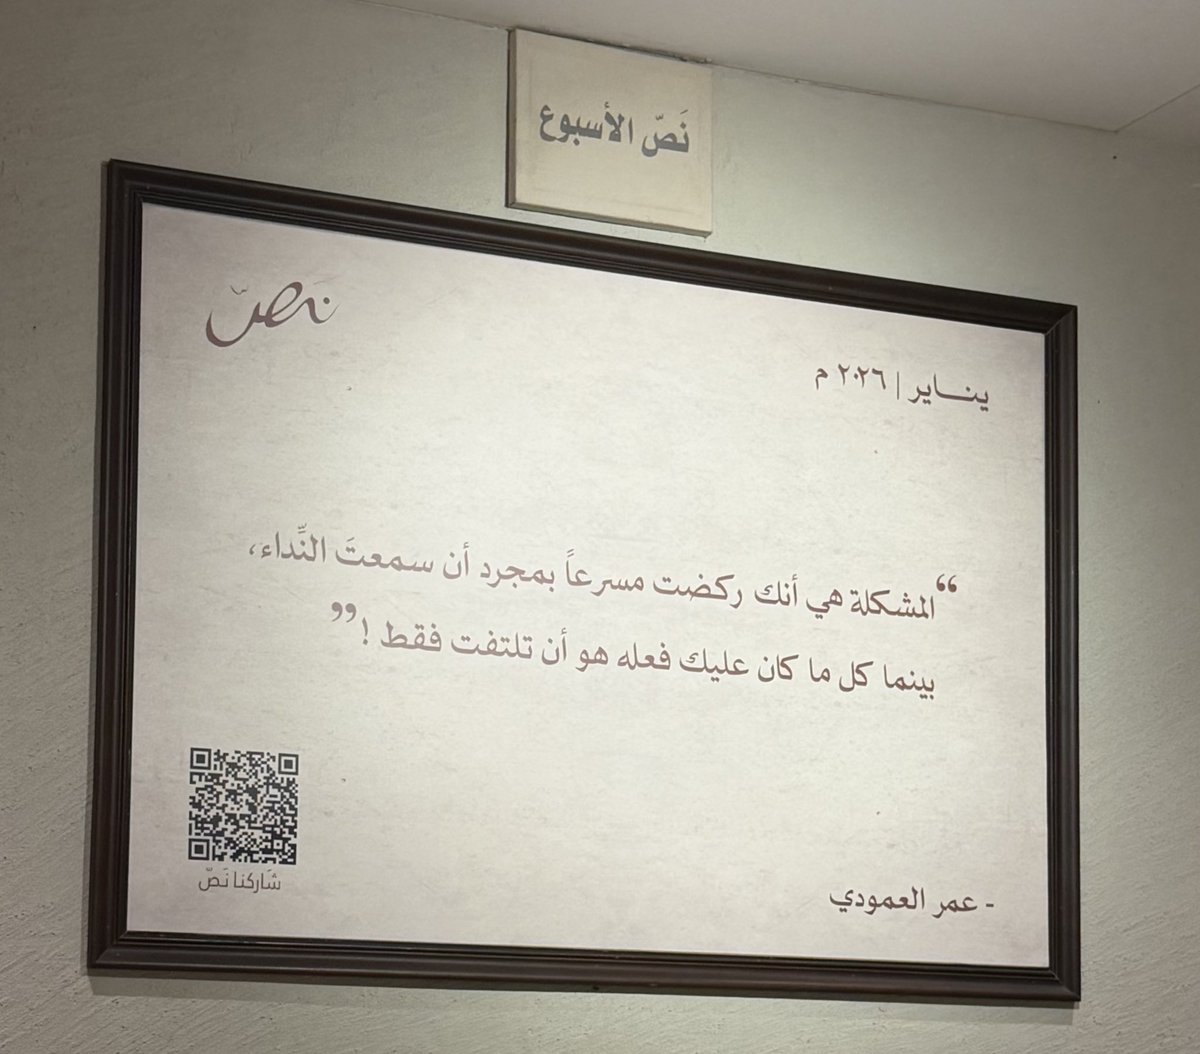 نَصّ الأسبوع
نَصّ
ينـــاير | ٢٠٢٦ م
“المشكلة هي أنك ركضت مسرعاً بمجرد أن سمعتَ النِّداء،
بينما كل ما كان عليك فعله هو أن تلتفت فقط !”
شَاركنا نَصّ
- عمر العمودي